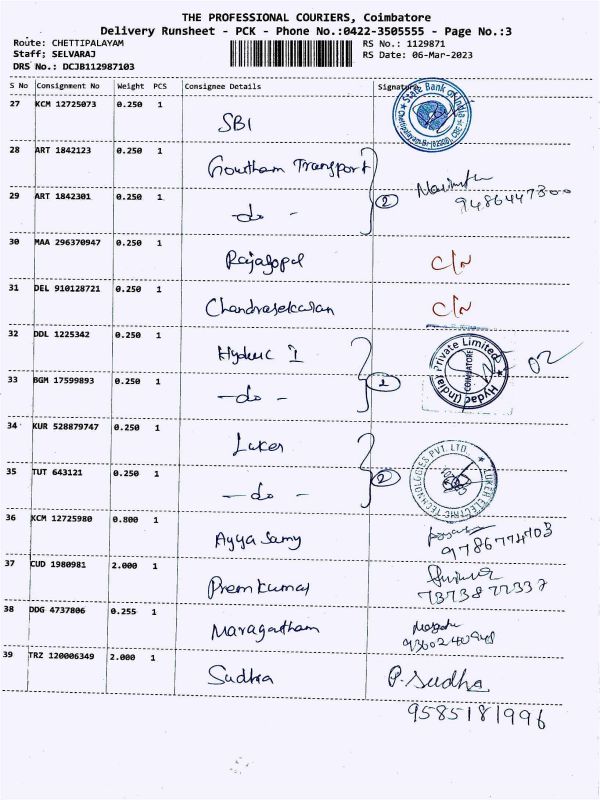 THE PROFESSIONAL COURIERS, Coimbatore
Delivery Runsheet - PCK - Phone No.:0422-3505555 - Page No.:3
Route: CHETTIPALAYAM RS No.: 1129871
Staff; SELVARAJ RS Date: 06-Mar-2023
DRS No.: DCJB112987103
S No Consignment No Weight PCS Consignee Details Signature
27 KCM 12725073 0.250 1 SBI State Bank of India
28 ART 1842123 0.250 1 Goutham Transport
29 ART 1842301 0.250 1 -do- 2 9486447300
30 MAA 296370947 0.250 1 Rajagopal C/N
31 DEL 910128721 0.250 1 Chandrasekaran C/N
32 DDL 1225342 0.250 1 Hydac I Hydac (India) Private Limited COIMBATORE
33 BGM 17599893 0.250 1 -do- 2
34 KUR 528879747 0.250 1 Luker LUKER ELECTRIC TECHNOLOGIES PVT. LTD.
35 TUT 643121 0.250 1 -do- 2
36 KCM 12725980 0.800 1 Ayya Samy 9786774703
37 CUD 1980981 2.000 1 Premkumar 7373877337
38 DDG 4737806 0.255 1 Maragatham 9360240948
39 TRZ 120006349 2.000 1 Sudha P. Sudha
9585181996